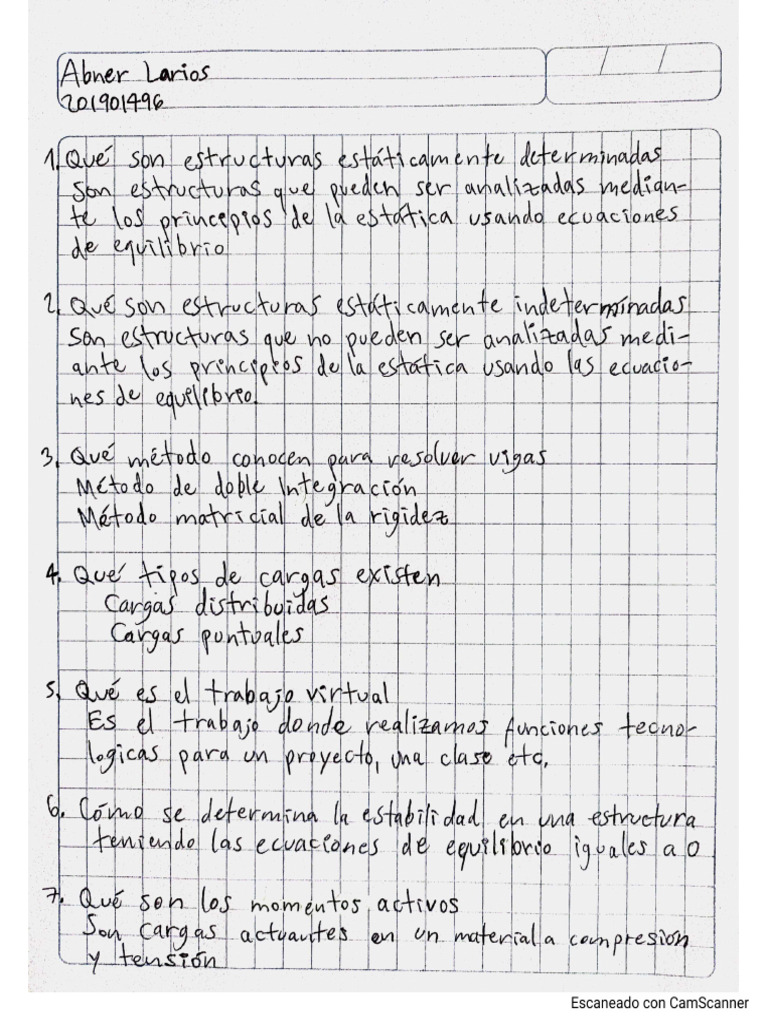 Abner Larios
201901496
1. Qué son estructuras estáticamente determinadas
Son estructuras que pueden ser analizadas median-
te los principios de la estática usando ecuaciones
de equilibrio
2. Qué son estructuras estáticamente indeterminadas
Son estructuras que no pueden ser analizadas medi-
ante los principios de la estática usando las ecuacio-
nes de equilibrio.
3. Qué método conocen para resolver vigas
Método de doble Integración
Método matricial de la rigidez
4. Qué tipos de cargas existen
Cargas distribuidas
Cargas puntuales
5. Qué es el trabajo virtual
Es el trabajo donde realizamos funciones tecno-
logicas para un proyecto, una clase etc.
6. Cómo se determina la estabilidad en una estructura
teniendo las ecuaciones de equilibrio iguales a 0
7. Qué son los momentos activos
Son cargas actuantes en un material a compresión
y tensión
Escaneado con CamScanner